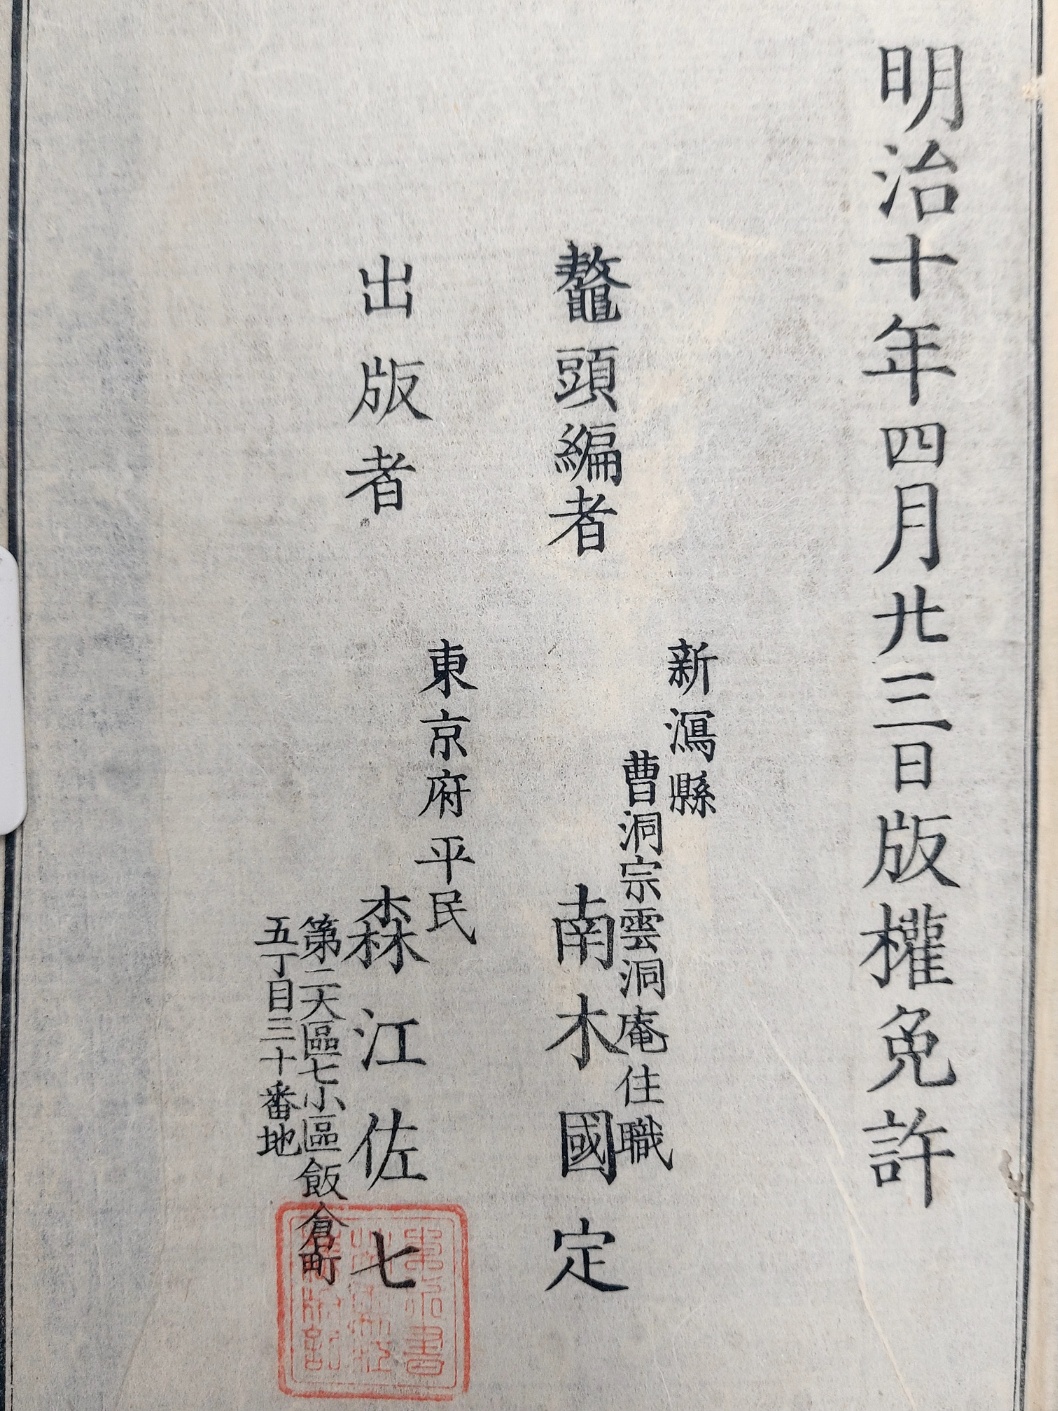 明治十年四月廿三日版權免許
新潟縣
曹洞宗雲洞庵住職
鼇頭編者 南木國定
東京府平民
出版者 森江佐七
第二大區七小區飯倉町
五丁目三十番地